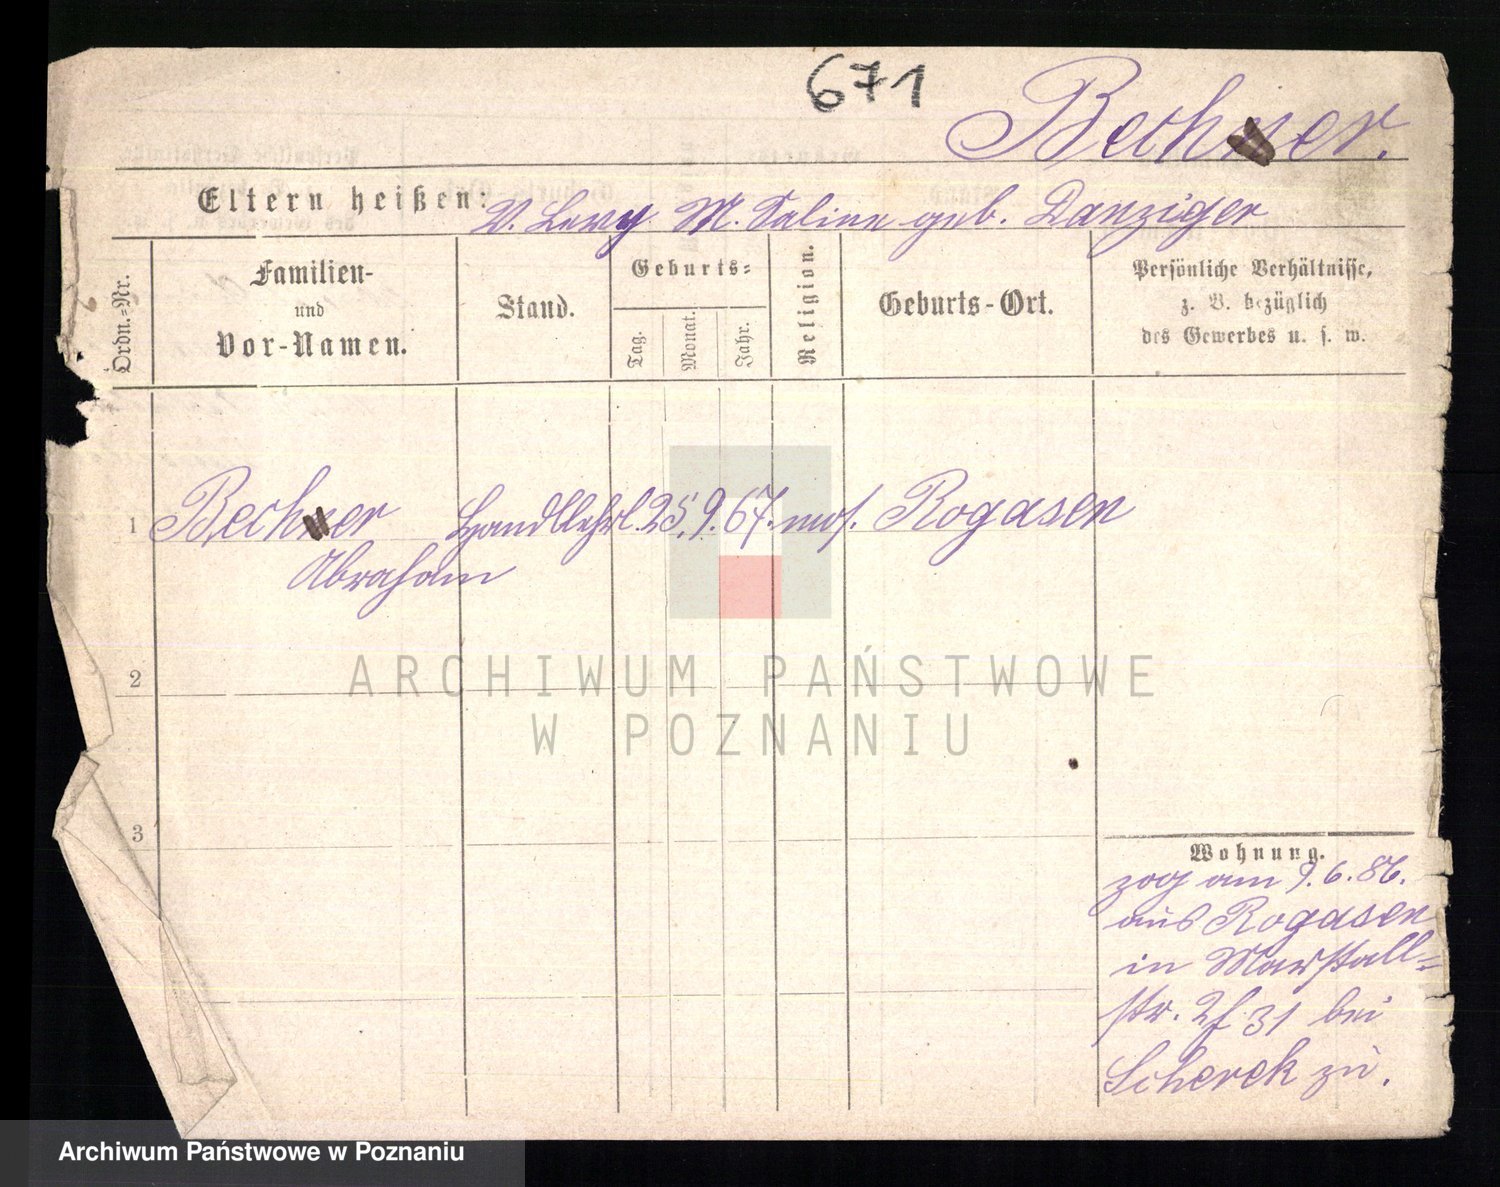 671
Bechner.
Eltern heißen: V. Levy M. Saline geb. Danziger
Ordn.-Nr.
Familien-
und
Vor-Namen.
Stand.
Geburts-
Tag.
Monat.
Jahr.
Religion.
Geburts-Ort.
Persönliche Verhältnisse,
z. B. bezüglich
des Gewerbes u. s. w.
1 Bechner Handllehrl. 25. 9. 67. mos. Rogasen
Abraham
2
3
ARCHIWUM PAŃSTWOWE
W POZNANIU
Wohnung.
zog am 9.6.86.
aus Rogasen
in Marstall-
str. 31 bei
Scherek zu.
Archiwum Państwowe w Poznaniu